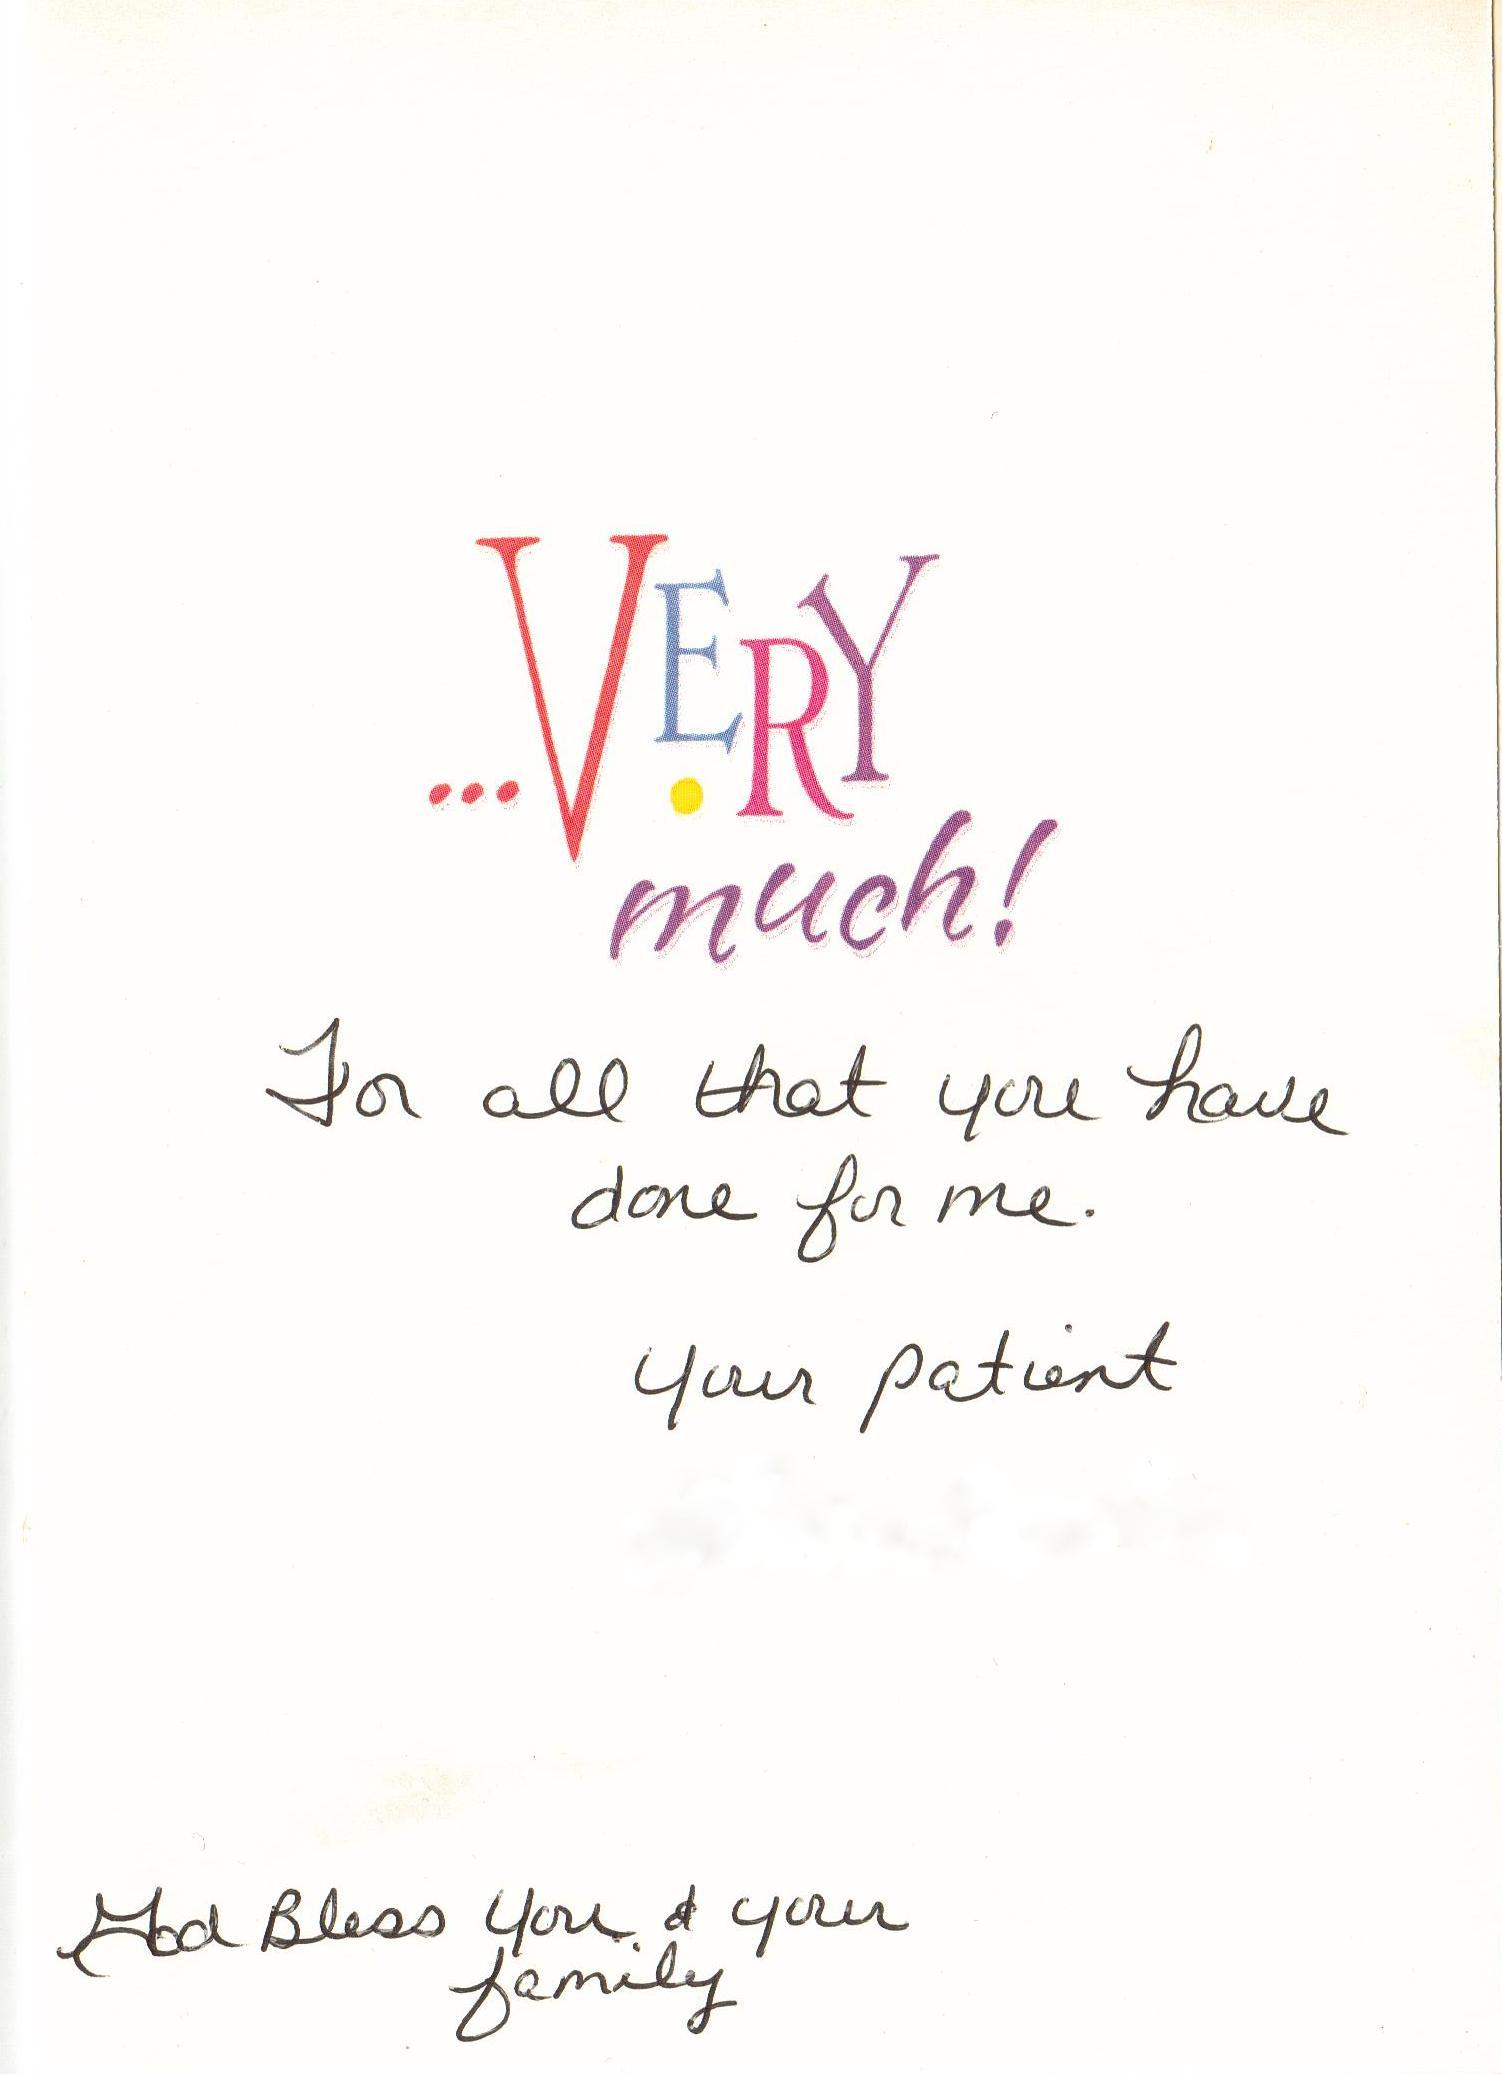 ...VERY
much!
For all that you have
done for me.
your patient
God Bless you & your
family